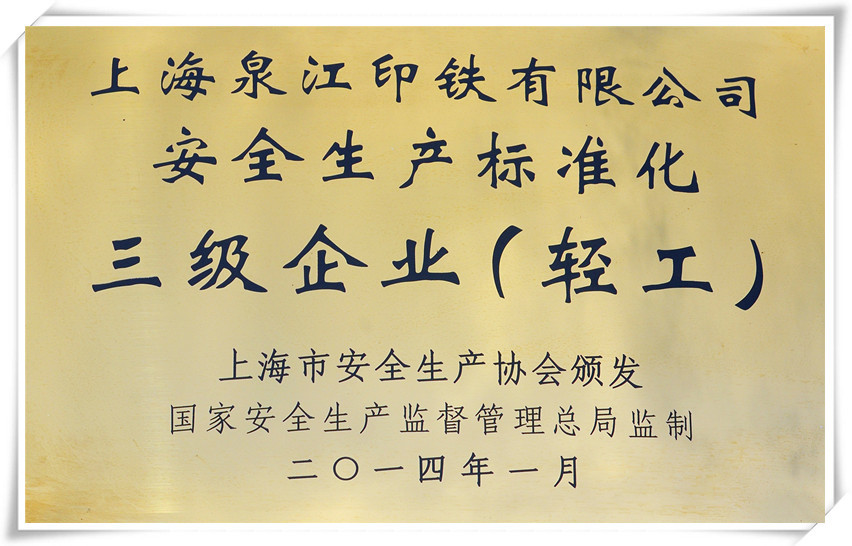 上海泉江印铁有限公司
安全生产标准化
三级企业（轻工）
上海市安全生产协会颁发
国家安全生产监督管理总局监制
二〇一四年一月